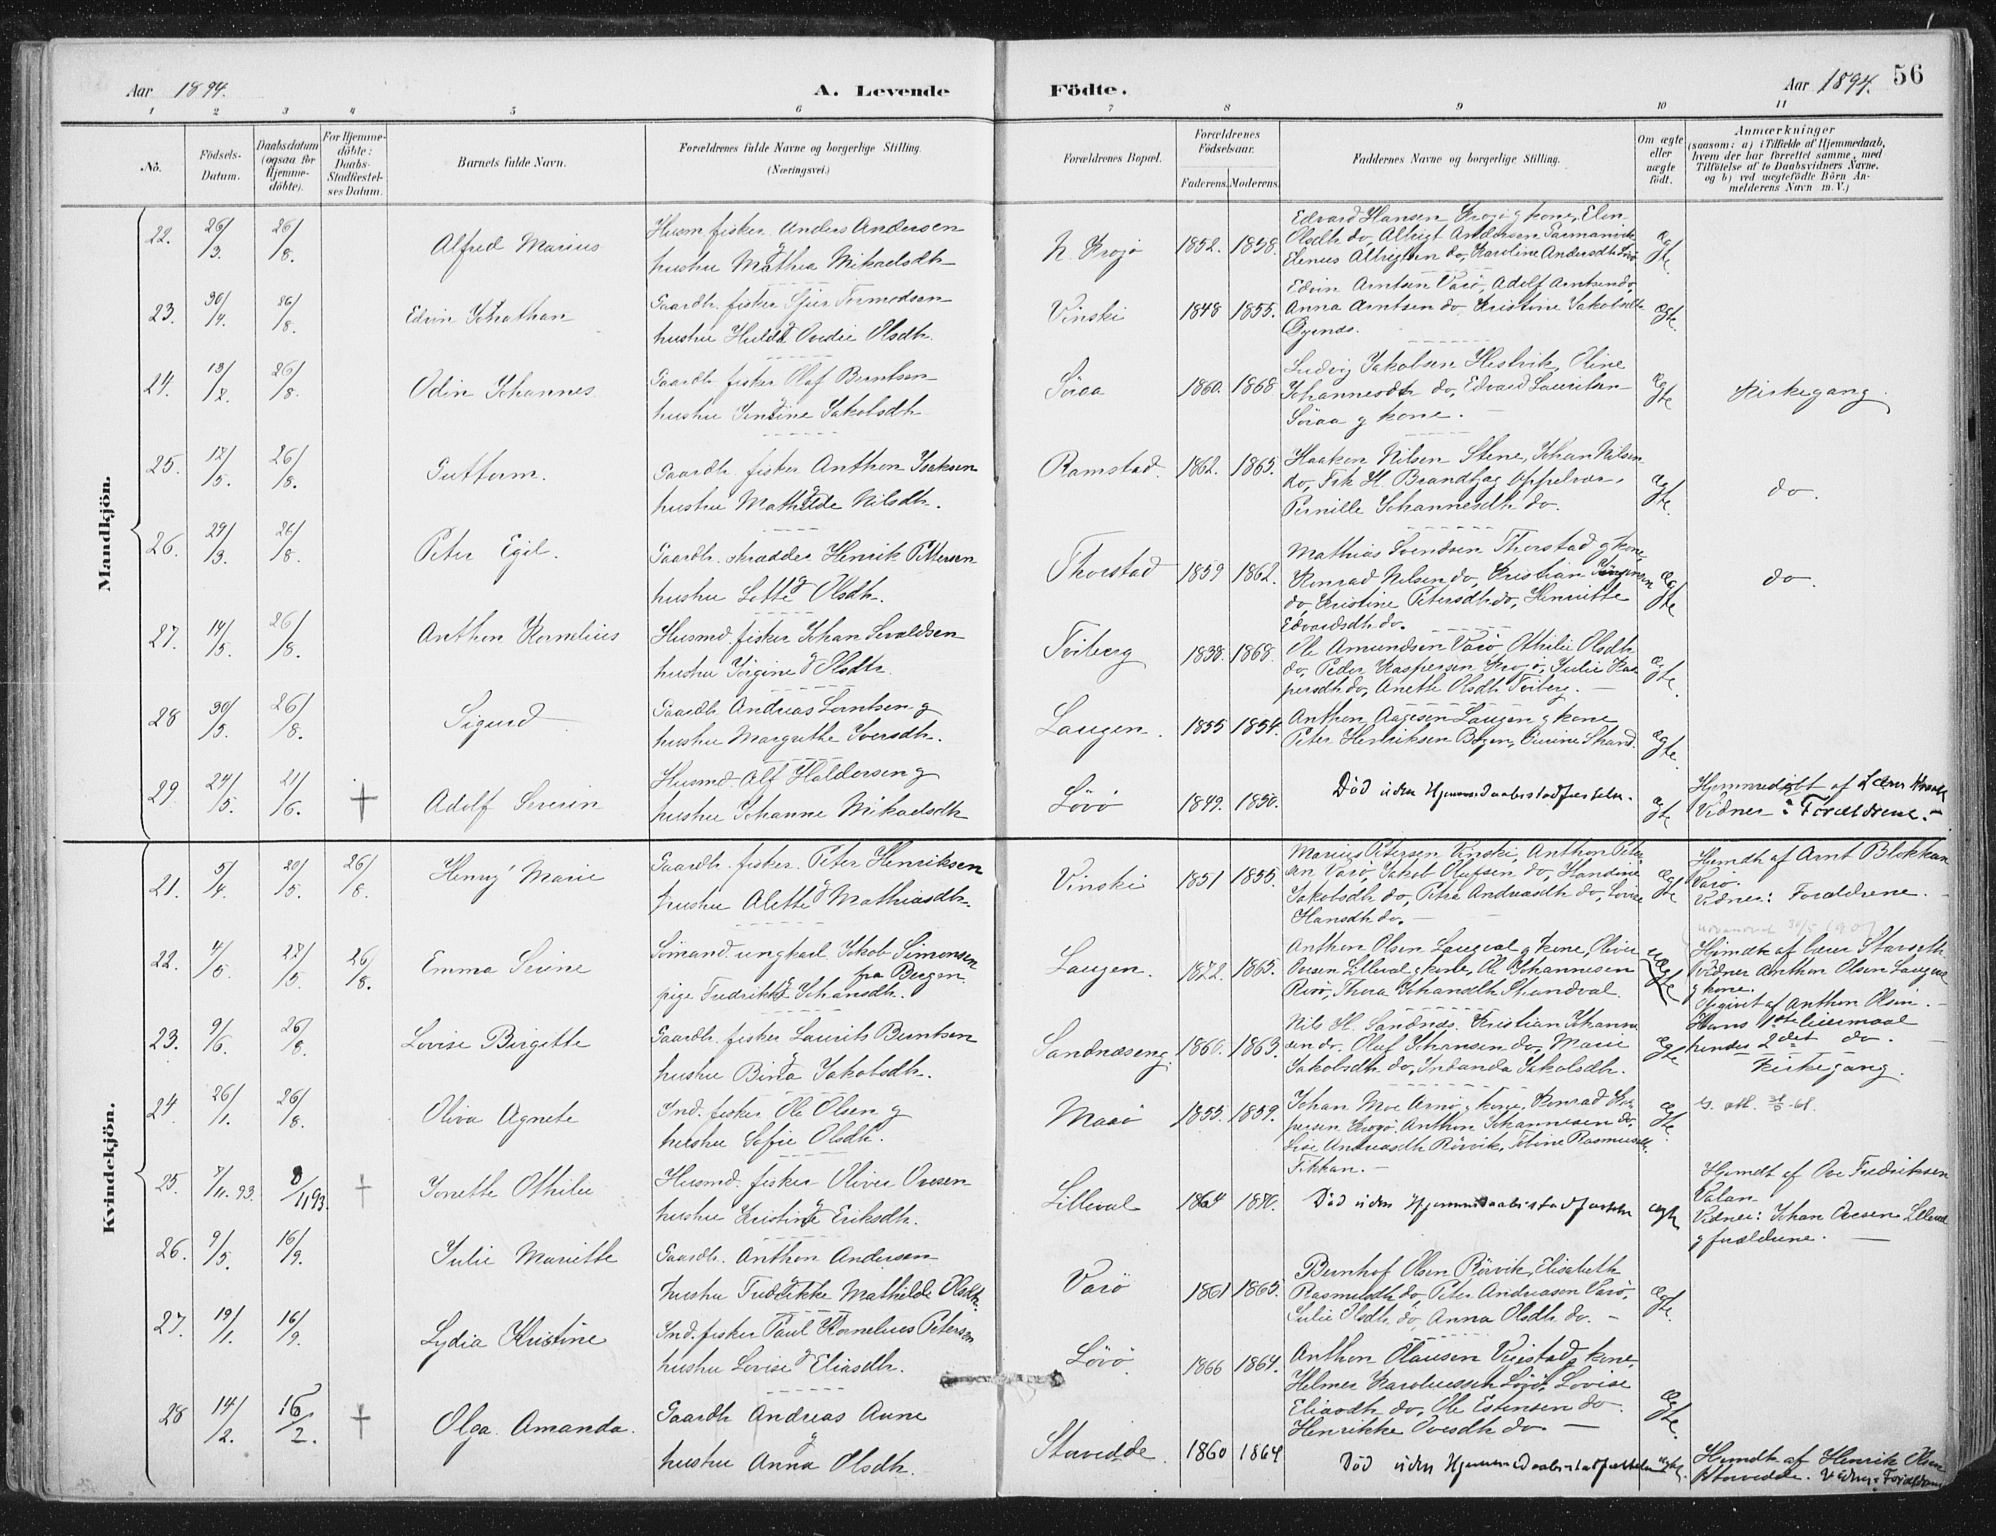 Aar 1894.
A. Levende Födte.
Aar 1894.
56
1 2 3 4 5 6 7 8 9 10 11
No.
Födsels-Datum.
Daabsdatum (ogsaa for Hjemme-döbte).
For Hjemme-döbte: Daabs-Stadfæstel-ses Datum.
Barnets fulde Navn.
Forældrenes fulde Navne og borgerlige Stilling.
(Næringsvei.)
Forældrenes Bopæl.
Forældrenes Födselsaar.
Faderens. Moderens.
Faddernes Navne og borgerlige Stilling.
Om ægte eller uægte födt.
Anmærkninger
(saasom: a) i Tilfælde af Hjemmedaab,
hvem der har forrettet samme, med
Tilföielse af to Daabsvidners Navne.
og b) ved uægtefödte Börn An-
melderens Navn m. V.)
Mandkjön.
22. 26/3. 26/8. Alfred Marius
Husm. fisker Anders Andersen
g hustru Mathea Mikaelsdtr
N. Krojö 1852. 1858.
Edvard Hansen Krojö g kone, Elen
Olsdtr do, Altrigt Andersen
Elenus Altrigtsen do, Karoline Andersdtr
Ægte.
23. 30/4. 26/8. Edvin Johathan
Gaardb. fisker Sjur Tormodsen
g hustru Hulda Ovidie Olsdtr.
Vinski 1848 1855.
Edvin Arntsen Varö, Adolf Arntsen do,
Anna Arntsen do, Kristine Jakobsdtr
Dyrnes.
Ægte.
24. 13/2. 26/8. Odin Johannes
Gaardb. fisker Olaf Berntsen
g hustru Jensine Jakobsdtr
Söraa 1860. 1868.
Ludvig Jakobsen Hestvik, Oline
Johannesdtr do, Edvard Lauritsen
Söraa g kone.
Ægte
Kirkegang.
25. 12/5. 26/8. Guttorm.
Gaardb. fisker Anthon Isaksen
g hustru Mathilde Nilsdtr.
Ramstad. 1862. 1865.
Haakon Nilsen Stene, Johan Nilsen
do, Frk H. Brandtzæg Oppelvar,
Pernille Johannesdtr do.
Ægte
do.
26. 29/3. 26/8. Peter Egil.
Gaardb. skrædder Henrik Pettersen
g hustru Lotte Olsdtr.
Thorstad 1859 1862.
Mathias Svendsen Thorstad g kone,
Konrad Nilsen do, Kristian Jörgensen
do, Kristine Petersdtr do, Henriette
Edvardsdtr do.
Ægte
do.
27. 14/5. 26/8. Anthon Kornelius
Husmd. fisker Johan Sevaldsen
g hustru Jörgine Olsdtr.
Toiberg 1838. 1868.
Ole Amundsen Varö Othilie Olsdtr
do, Peder Kaspersen Krojö, Julie Kas-
persdtr do, Anette Olsdtr Toiberg.
Ægte.
28 30/5. 26/8. Sigurd
Gaardb. Andreas Lorntsen g
hustru Margrethe Iversdtr.
Laugen. 1855 1854.
Anthon Aagesen Laugen g kone
Peter Henriksen Bogen,
Ægte.
29 24/5. 21/6. + Adolf Severin
Husmd. Alf Haldorsen g
hustru Johanne Mikaelsdtr
Lövö 1849. 1850.
Död uden Hjemmedaabsstadfæstelse.
Ægte
Hjemmedöbt af Lærer
Vidner: Forældrene.
Kvindekjön.
21. 5/4. 20/5. 26/8. Henny Marie
Gaardb. fisker. Peter Henriksen
g hustru Alette Mathiasdtr.
Vinski 1851 1855.
Marius Petersen Vinski, Anthon Peter-
sen Varö, Jakob Olufsen do, Handine
Jakobsdtr do, Petra Andreasdtr do, Lovise
Hansdtr do.
Ægte
Hjemdt af Arnt Blokkan
Varö.
Vidner: Forældrene.
22. 4/5. 27/5. 26/8. Emma Serine
Sömand. ungkarl Jakob Simonsen
fra Bergen
g pige Fredrikke Johansdtr.
Laugen. 1872. 1865.
Anthon Olsen Laugval g kone, Oliver
Ovesen Lilleval g kone, Ole Johannesen
Risö, Thora Johansdtr Strandval.
Uægte
Hjemdt af lærer Starseth
Vidner Anthon Olsen Laugval
g kone.
Opgivet af Anthon Olsen.
Hans 1ste leiermaal
hendes 2det do.
23. 9/6. 26/8. Lovise Birgitte
Gaardb. fisker Laurits Berntsen
g hustru Berta Jakobsdtr.
Sandnæseng. 1860. 1863.
Nils H. Sandnes. Kristian Johanne-
sen do. Oluf Johansen do, Marie
Jakobsdtr do, Indianda Jakobsdtr.
Ægte
Kirkegang.
24. 26/1. 26/8. Oliva Agnete
Ind. fisker Ole Olsen g
hustru Sofie Olsdtr.
Masö 1855. 1859.
Johan Moe Arnö g kone, Konrad
Krojö. Anthon Johannesen do,
Lise Andreasdtr Rörvik, Tobine Rasmusdtr.
Tikkan.
Ægte.
25. 7/11. 93. 8/11 93. + Jonette Othilie
Husmd. fisker Oliver Ovesen
g hustru Kristine Eriksdtr.
Lilleval 1864 1870.
Död uden Hjemmedaabsstadfæstelse
ægte
Hjemdt af Ove Fredriksen
Valan.
Vidner: Johan Ovesen Lilleval
g forældrene.
26. 9/5. 16/9. Julie Mariette
Gaardb. Anthon Andersen
g hustru Fredrikke Mathilde Olsdtr.
Varö 1861 1865.
Bernhof Olsen Rörvik, Elisabeth
Rasmusdtr do, Peter Andreasen Varö,
Julie Olsdtr do, Anna Olsdtr do.
Ægte.
27. 19/1. 16/9. Lydia Kristine
Ind. fisker Paul Kornelius Petersen
g hustru Lovise Eliasdtr.
Lövö. 1866 1864.
Anthon Olausen Vegstad g kone,
Helmer Karoliussen Lövö, Lovise
Eliasdtr do, Ole Estensen do.
Henrikke Ovesdtr do
Ægte.
28 14/2. 16/2. + Olga Amanda.
Gaardb. Andreas Aune
g hustru Anna Olsdtr.
Storvedde. 1860 1864
Död uden Hjemmedaabsstadfæstelse
ægte.
Hjemdt af Henrik Olsen
Storvedde. Vidner: Forældrene